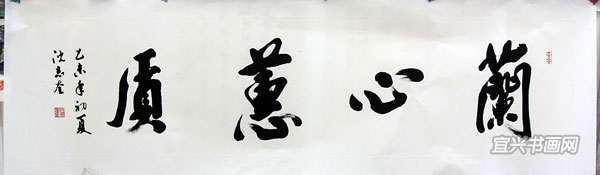 蘭心蕙質
乙未年初夏
宜兴书画网